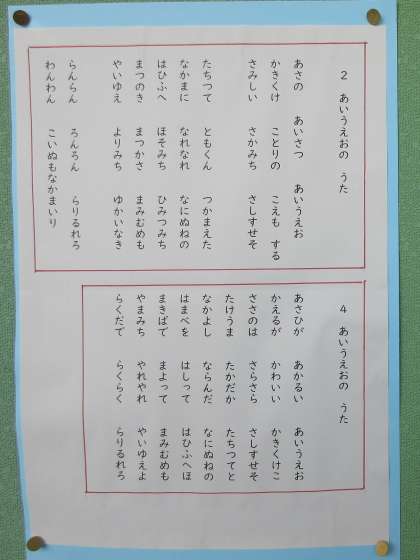 2 あいうえおの うた
あさの あいさつ あいうえお
かきくけ ことりの こえも する
さみしい さかみち さしすせそ
たちつて ともくん つかまえた
なかまに なれなれ なにぬねの
はひふへ ほそみち ひみつみち
まつのき まつかさ まみむめも
やいゆえ よりみち ゆかいなき
らんらん ろんろん らりるれろ
わんわん こいぬもなかまいり
4 あいうえおの うた
あさひが あかるい あいうえお
かえるが かわいい かきくけこ
ささのは さらさら さしすせそ
たけうま たかだか たちつてと
なかよし ならんだ なにぬねの
はまべを はしって はひふへほ
まきばで まよって まみむめも
やまみち やれやれ やいゆえよ
らくだで らくらく らりるれろ